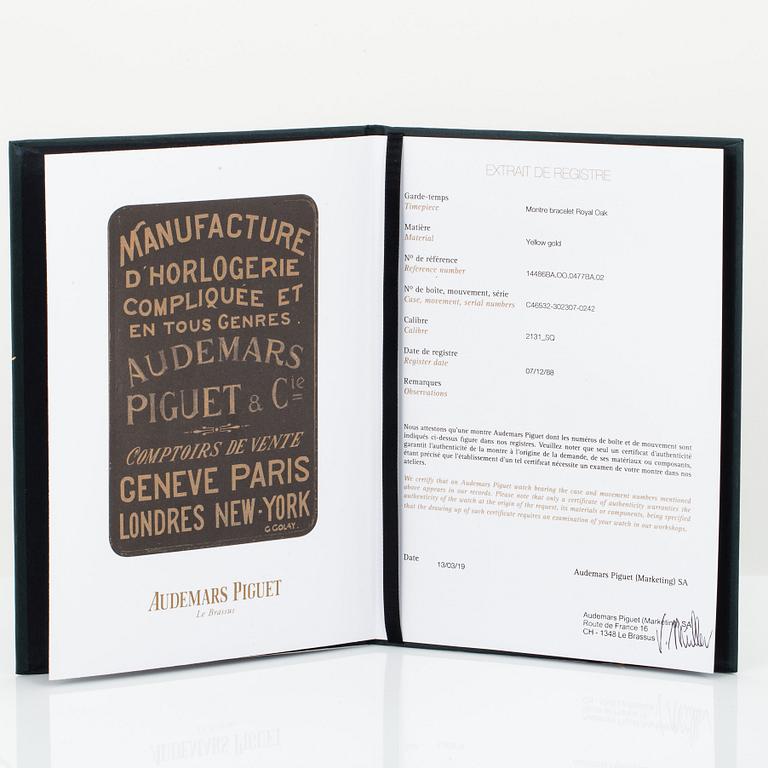 MANUFACTURE
D'HORLOGERIE
COMPLIQUÉE ET
EN TOUS GENRES.
AUDEMARS
PIGUET & Cie
COMPTOIRS DE VENTE
GENEVE PARIS
LONDRES NEW-YORK
G. GOLAY.
AUDEMARS PIGUET
Le Brassus
EXTRAIT DE REGISTRE
Garde-temps
Timepiece
Montre bracelet Royal Oak
Matière
Material
Yellow gold
N° de référence
Reference number
14486BA.OO.0477BA.02
N° de boîte, mouvement, série
Case, movement, serial numbers
C46532-302307-0242
Calibre
Calibre
2131_SQ
Date de registre
Register date
07/12/88
Remarques
Observations
Nous attestons qu'une montre Audemars Piguet dont les numéros de boîte et de mouvement sont
indiqués ci-dessus figure dans nos registres. Veuillez noter que seul un certificat d'authenticité
garantit l'authenticité de la montre à l'origine de la demande, de ses matériaux ou composants,
étant précisé que l'établissement d'un tel certificat nécessite un examen de votre montre dans nos
ateliers.
We certify that an Audemars Piguet watch bearing the case and movement numbers mentioned
above appears in our records. Please note that only a certificate of authenticity warranties the
authenticity of the watch at the origin of the request, its materials or components, being specified
that the drawing up of such certificate requires an examination of your watch in our workshops.
Date
13/03/19
Audemars Piguet (Marketing) SA
Audemars Piguet (Marketing) SA
Route de France 16
CH - 1348 Le Brassus